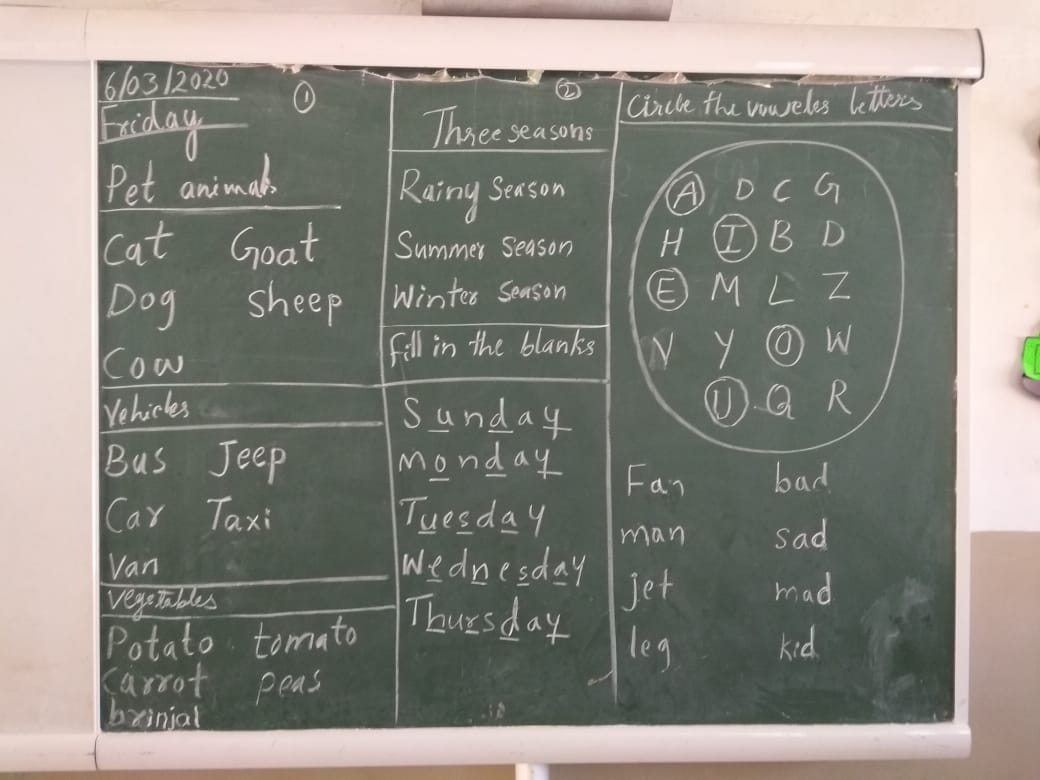 6/03/2020
①
Friday
Pet animals
Cat Goat
Dog sheep
Cow
Vehicles
Bus Jeep
Car Taxi
Van
Vegetables
Potato tomato
Carrot peas
brinjal
②
Three seasons
Rainy Season
Summer Season
Winter Season
fill in the blanks
Sunday
Monday
Tuesday
Wednesday
Thursday
Circle the vouweles letters
A D C G
H I B D
E M L Z
N Y O W
U Q R
Fan bad
man sad
jet mad
leg kid